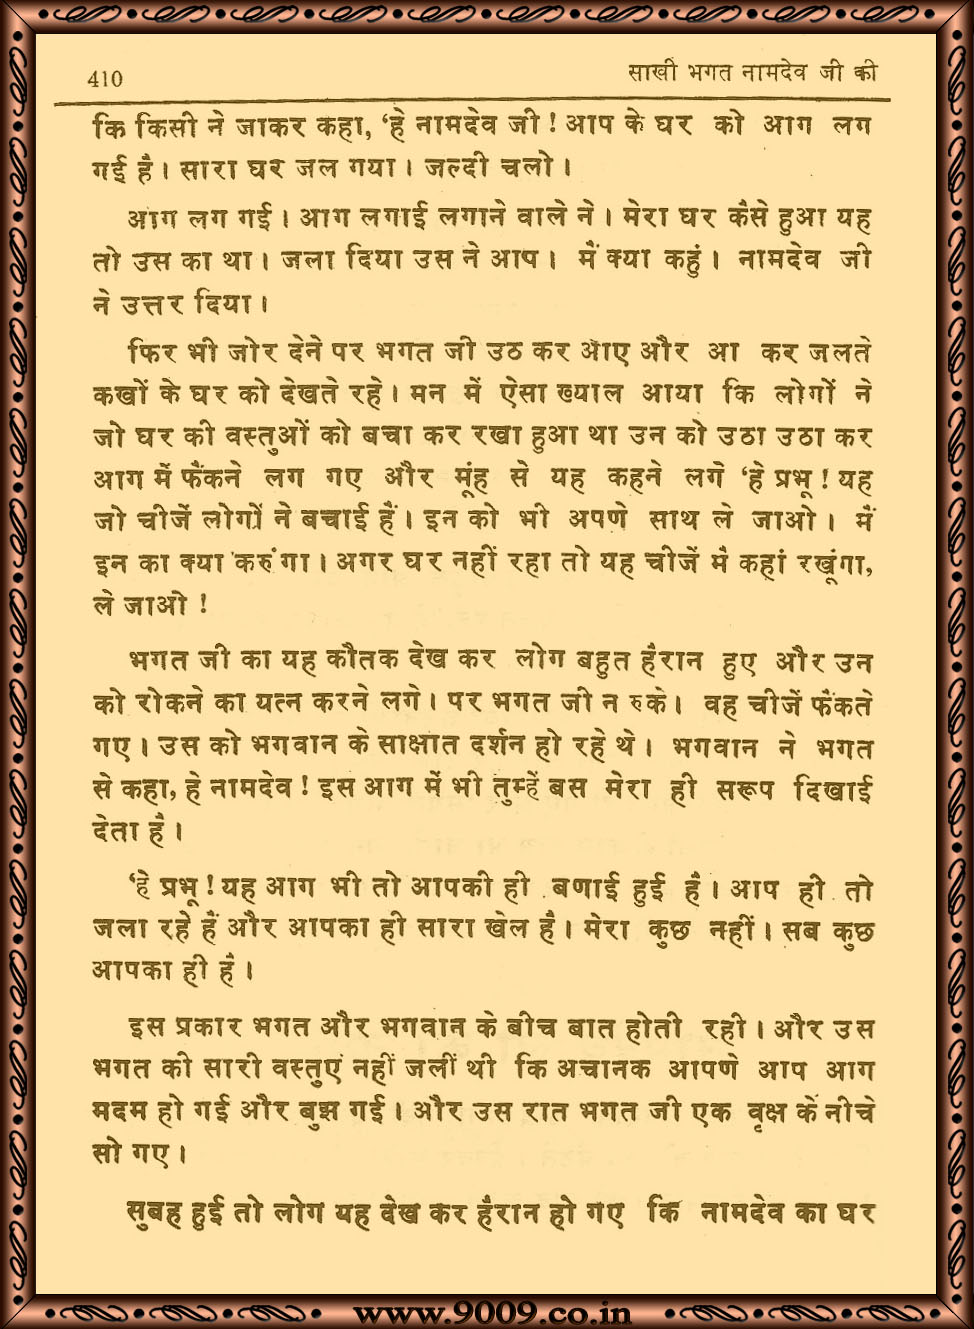 410
साखी भगत नामदेव जी की
कि किसी ने जाकर कहा, ‘हे नामदेव जी ! आप के घर को आग लग
गई है। सारा घर जल गया। जल्दी चलो।
आग लग गई। आग लगाई लगाने वाले ने। मेरा घर कैसे हुआ यह
तो उस का था। जला दिया उस ने आप। मैं क्या कहुं। नामदेव जी
ने उत्तर दिया।
फिर भी जोर देने पर भगत जी उठ कर आए और आ कर जलते
कखों के घर को देखते रहे। मन में ऐसा ख्याल आया कि लोगों ने
जो घर की वस्तुओं को बचा कर रखा हुआ था उन को उठा उठा कर
आग में फैंकने लग गए और मूंह से यह कहने लगे ‘हे प्रभू ! यह
जो चीजें लोगों ने बचाई हैं। इन को भी अपणे साथ ले जाओ। मैं
इन का क्या करुंगा। अगर घर नहीं रहा तो यह चीजें मै कहां रखूंगा,
ले जाओ !
भगत जी का यह कौतक देख कर लोग बहुत हैरान हुए और उन
को रोकने का यत्न करने लगे। पर भगत जी न रुके। वह चीजें फैंकते
गए। उस को भगवान के साक्षात दर्शन हो रहे थे। भगवान ने भगत
से कहा, हे नामदेव ! इस आग में भी तुम्हें बस मेरा ही सरूप दिखाई
देता है।
‘हे प्रभू ! यह आग भी तो आपकी ही बणाई हुई है। आप ही तो
जला रहे हैं और आपका ही सारा खेल है। मेरा कुछ नहीं। सब कुछ
आपका ही है।
इस प्रकार भगत और भगवान के बीच बात होती रही। और उस
भगत की सारी वस्तुएं नहीं जलीं थी कि अचानक आपणे आप आग
मदम हो गई और बुझ गई। और उस रात भगत जी एक वृक्ष के नीचे
सो गए।
सुबह हुई तो लोग यह देख कर हैरान हो गए कि नामदेव का घर
www.9009.co.in